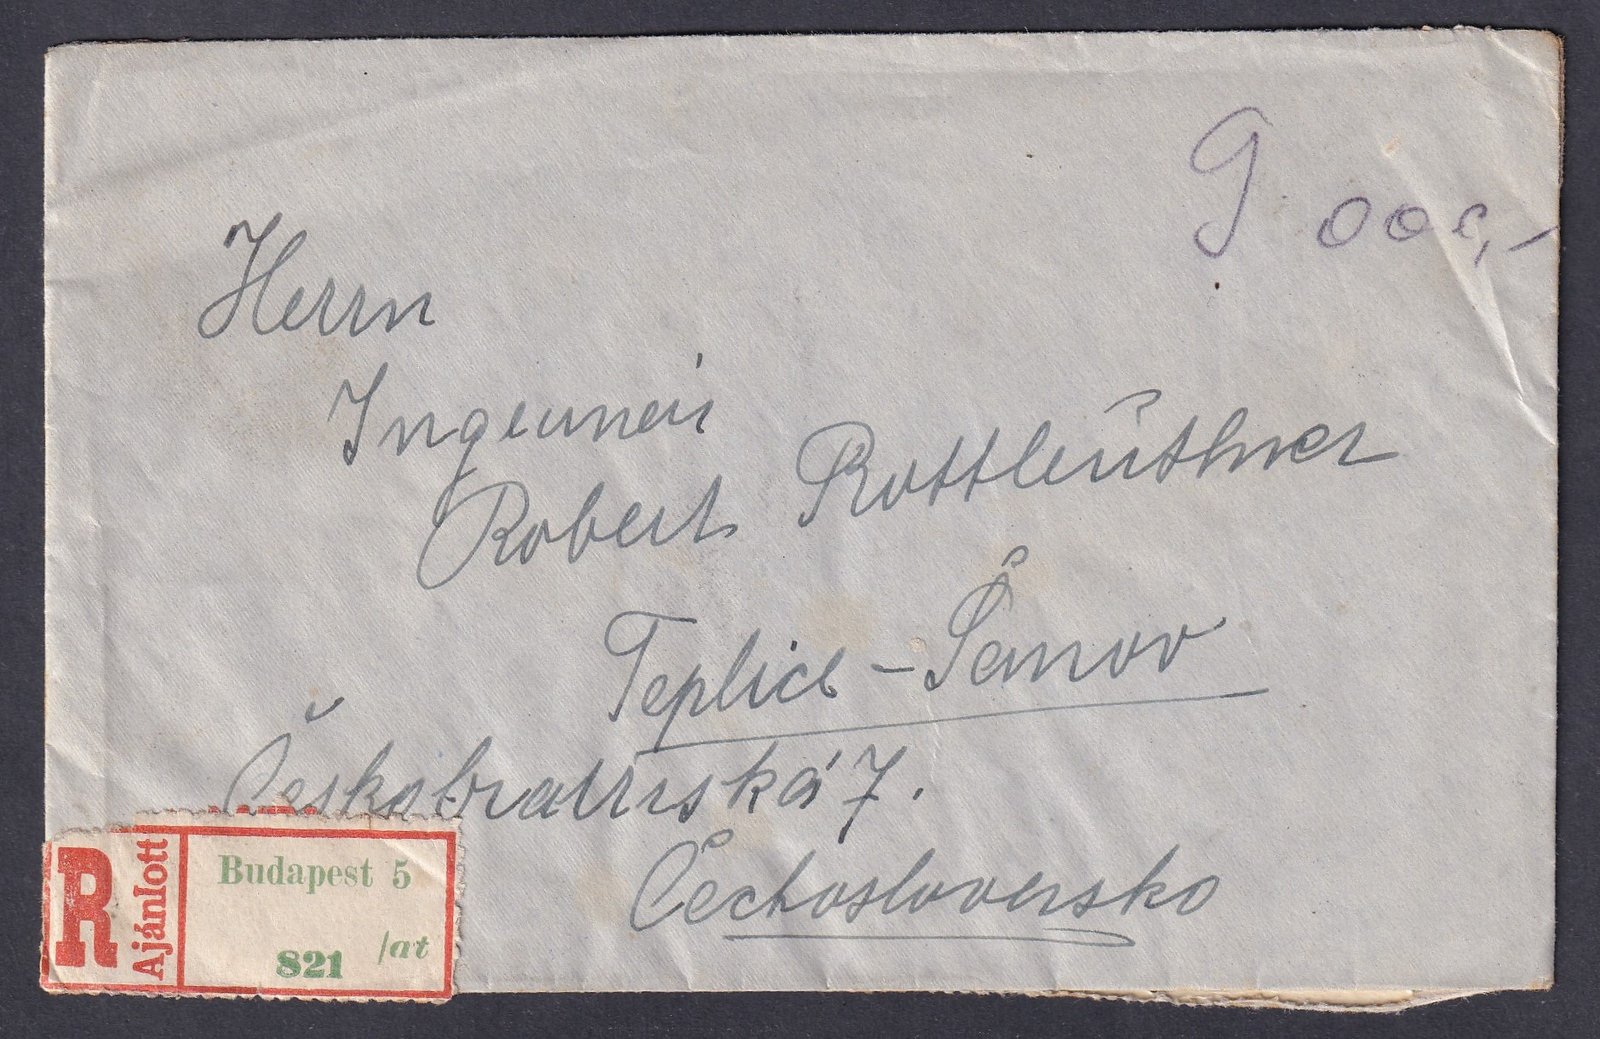 9 000,-
Herrn
Ingenneur
Robert Rottleuthner
Teplice-Šanov
Českobratrská 7.
Čechoslovensko
R Ajánlott
Budapest 5
821 /at